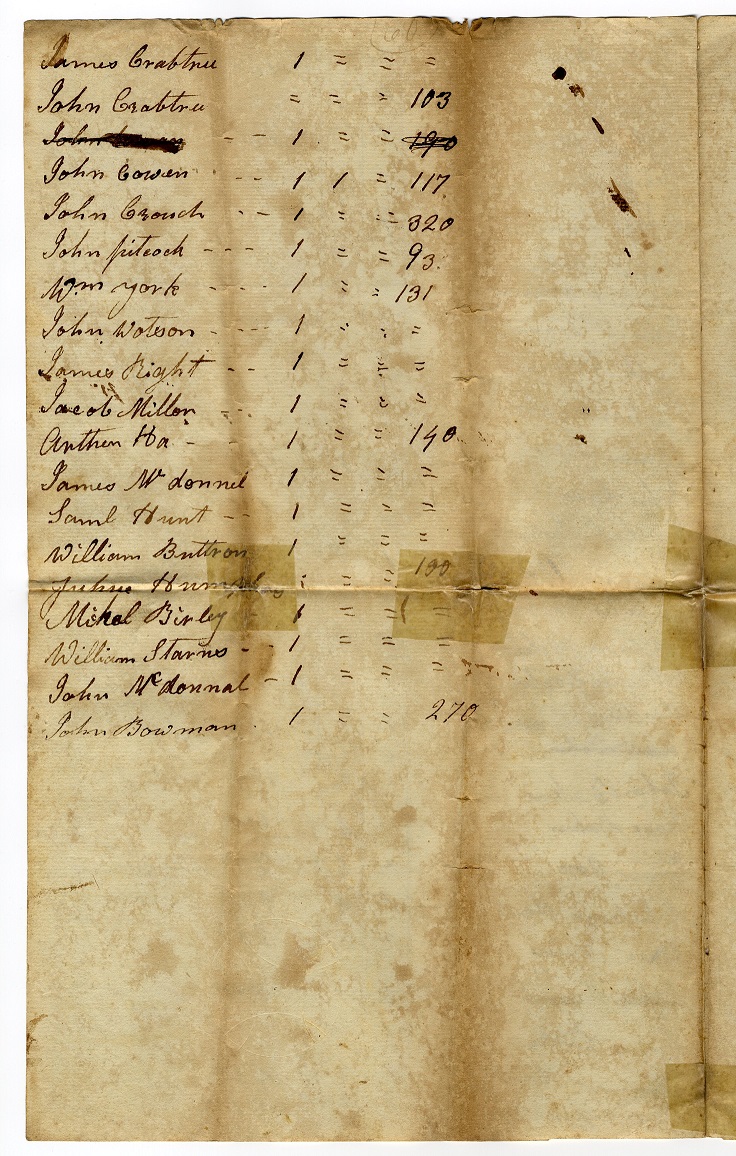 James Crabtree 1 " " "
John Crabtree " " " 103
John - - 1 " " 190
John Cowen - - 1 1 " 117
John Crouch - - 1 " " 320
John pitcock - - - 1 " " 93
Wm york - - - - 1 " " 131
John Wotson - - - 1 " " "
James Right - - 1 " " "
Jacob Miller - - 1 " " "
Arther Ha - - - 1 " " 140
James Mcdonnel 1 " " "
Saml Hunt - - 1 " " "
William Buttron 1 " " "
Humphres 1 " " 100
Mikel Birley - 1 " " "
William Starns - - 1 " " "
John Mcdonnal - 1 " " "
John Bowman - 1 " " 270